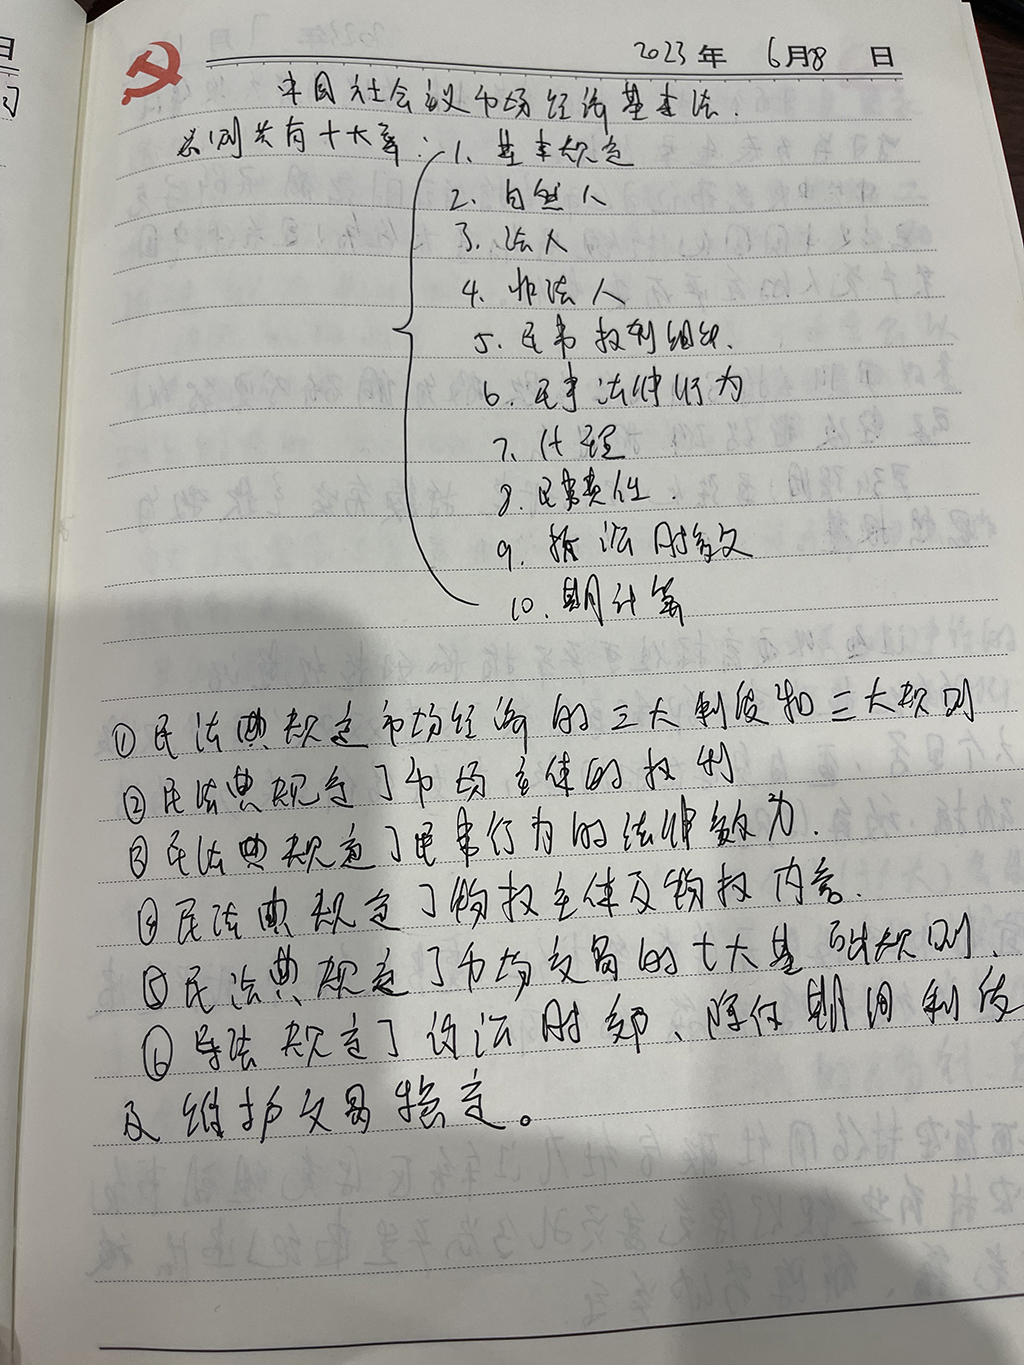 2023年 6月8日
中国社会主义市场经济基本法.
总则共有十大章: 1. 基本规定
2. 自然人
3. 法人
4. 非法人
5. 民事权利组织.
6. 民事法律行为
7. 代理
8. 民事责任.
9. 诉讼时效
10. 期计算
①民法典规定市场经济的三大制度和三大规则
②民法典规定了市场主体的权利
③民法典规定了民事行为的法律效力.
④民法典规定了物权主体及物权内容.
⑤民法典规定了市场交易的七大基础规则.
⑥民法规定了诉讼时效、除斥期间制度
及维护交易稳定。